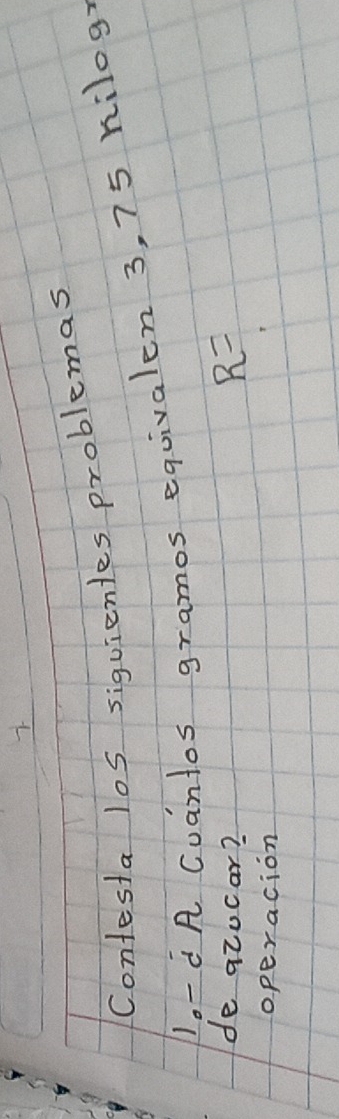 Contesta los siguientes problemas
1.- ¿A Cuántos gramos equivalen 3,75 kilogr
de azucar?
operación R=